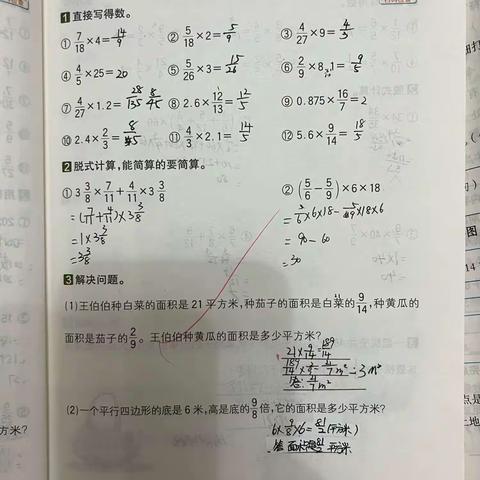 1 直接写得数。
① 7/18×4=14/9 ② 5/18×2=5/9 ③ 4/27×9=4/3
④ 4/5×25=20 ⑤ 5/26×3=15/26 ⑥ 2/9×8.1=9/5
⑦ 4/27×1.2=28/135 8/45 ⑧ 2.6×12/13=12/5 ⑨ 0.875×16/7=2
⑩ 2.4×2/3=8/5 ⑪ 4/3×2.1=14/5 ⑫ 5.6×9/14=18/5
2 脱式计算,能简算的要简算。
① 3 3/8×7/11+4/11×3 3/8 ② (5/6-5/9)×6×18
=(7/11+4/11)×3 3/8 =5/6×6×18-5/9×18×6
=1×3 3/8 =90-60
=3 3/8 =30
3 解决问题。
(1)王伯伯种白菜的面积是21平方米,种茄子的面积是白菜的9/14,种黄瓜的
面积是茄子的2/9。王伯伯种黄瓜的面积是多少平方米?
21×9/14=189/14
=3m²
(2)一个平行四边形的底是6米,高是底的9/8倍,它的面积是多少平方米?
6×9/8×6=81/2(平方米)
答:面积是81/2平方米